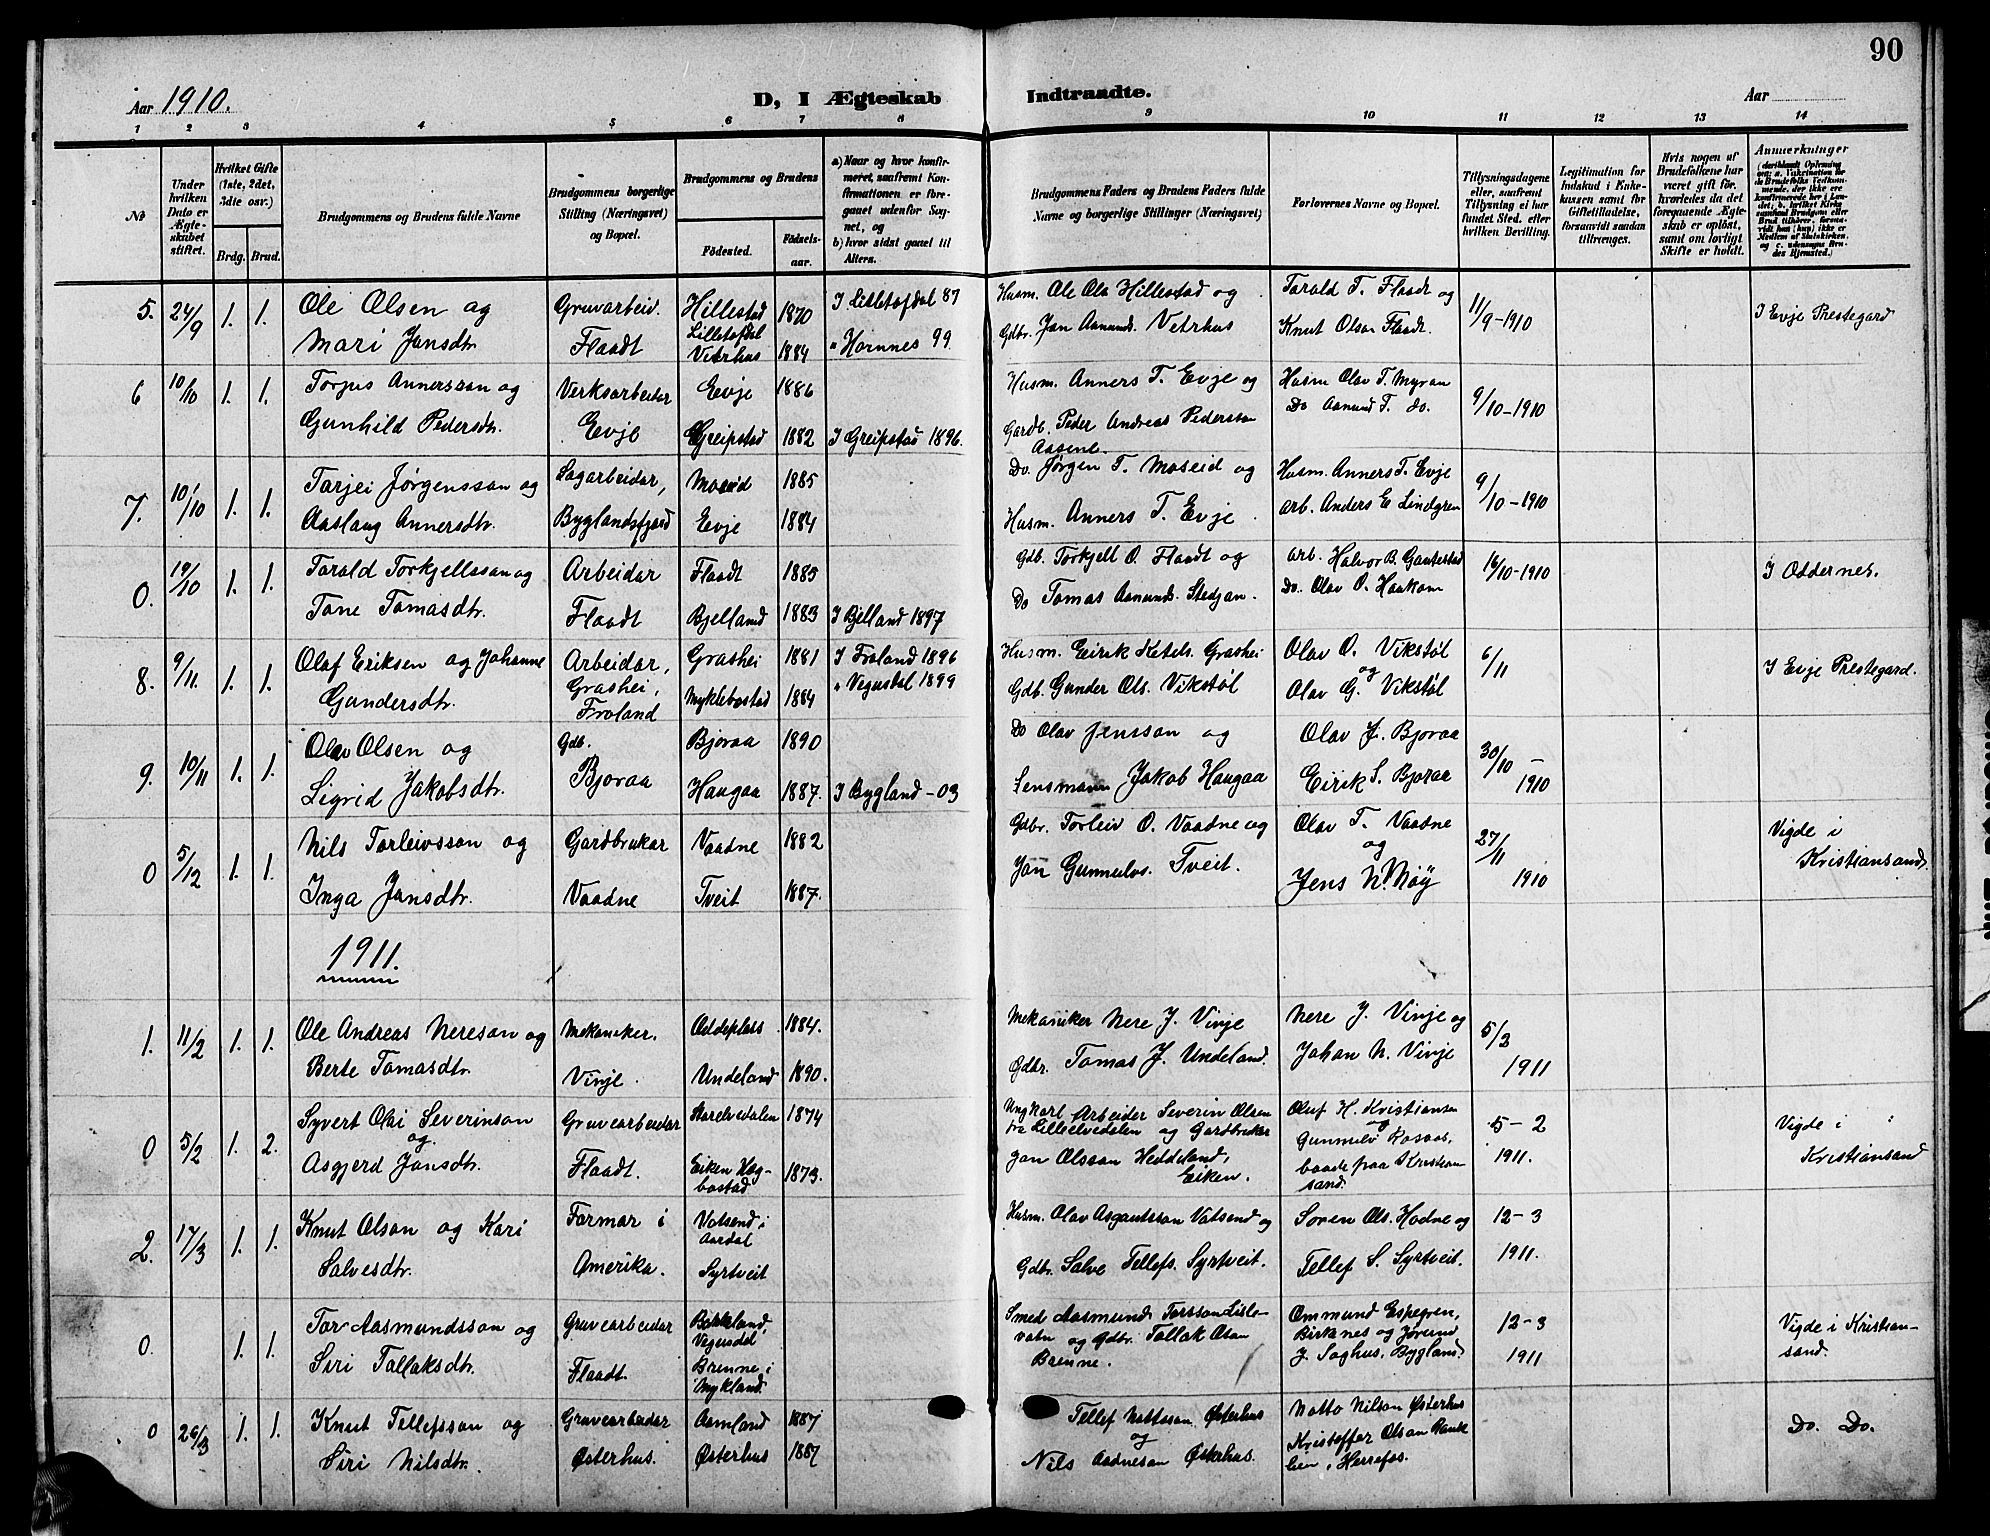 90
Aar 1910.
D, I Ægteskab Indtraadte.
Aar
1 2 3 4 5 6 7 8 9 10 11 12 13 14
No
Under hvilken Dato er Ægteskabet stiftet.
Hvilket Gifte (1ste, 2det, 3die osv.)
Brdg. Brud.
Brudgommens og Brudens fulde Navne
Brudgommens borgerlige Stilling (Næringsvei) og Bopæl.
Brudgommens og Brudens
Fødested. Fødselsaar.
a) Naar og hvor konfirmeret, saafremt Konfirmationen er foregaaet udenfor Sognet, og
b) hvor sidst gaaet til Alters.
Brudgommens Faders og Brudens Faders fulde Navne og borgerlige Stillinger (Næringsvei)
Forlovernes Navne og Bopæl.
Tillysningsdagene eller, saafremt Tillysning ei har fundet Sted, efter hvilken Bevilling.
Legitimation for Indskud i Enkekassen samt for Giftetilladelse, forsaavidt saadan tiltrænges.
Hvis nogen af Brudefolkene har været gift før, hvorledes da det foregaaende Ægteskab er opløst, samt om lovligt Skifte er holdt.
Anmerkninger
5. 24/9 1. 1. Ole Olsen og Gruvarbeid. Hillestad 1870 I Lilletofdal 87 Husm. Ole Ols Hillestad og Tarald T. Flaadt og 11/9-1910 I Evje Prestegard
Mari Jansdtr Flaadt Lilletofdal Vetrhus 1884 " Hornnes 99. Gdbr. Jan Aamunds. Vetrhus Knut Olsen Flaadt.
6 10/10 1. 1. Torjus Annersson og Verksarbeidar Evje 1886 Husm. Anners T. Evje og Husm Olav T. Myran 9/10-1910
Gunhild Pedersdtr. Evje Greipstad 1882 I Greipstad 1896. Gardb. Peder Andreas Pederssen Aasene. Do Aanund T. do.
7. 10/10 1. 1. Tarjei Jørgensson og Sagarbeidar, Moseid 1885 Do. Jørgen T. Moseid og Husm. Anners T. Evje 9/10-1910
Aaslaug Annersdtr. Byglandsfjord Evje 1884 Husm. Anners T. Evje. Arb. Anders E Lindgren
0. 19/10 1. 1. Tarald Torkjellsson og Arbeidar Flaadt 1885 Gdb. Torkjell O. Flaadt og Arb. Halvor B. Gautestad 16/10-1910 I Oddernes.
Tone Tomasdtr. Flaadt Bjelland 1883 I Bjelland 1897 Do Tomas Aanunds. Stedjan. Do. Olav O. Haakom
8. 9/11. 1. 1. Olaf Eriksen og Johanne Arbeidar, Grashei 1881 I Froland 1896 Husm. Eirik Ketels. Grashei Olav O. Vikstøl 6/11 I Evje Prestegard.
Gundersdtr. Grashei, Froland Myklebostad 1884 " Vegusdal 1899 Gdb. Gunder Ols. Vikstøl og Olav G. Vikstøl
9. 10/11 1. 1. Olav Olsen og Gdb. Bjoraa 1890 Do Olav Jensson og Olav J. Bjoraa 30/10-1910
Sigrid Jakobsdtr. Bjoraa Haugaa 1887. I Bygland-03 Lensmann Jakob Haugaa Eirik S. Bjoraa
0 5/12 1. 1. Nils Torleivsson og Gardbrukar Vaadne 1882 Gdbr. Torleiv O. Vaadne og Olav T. Vaadne 27/11 1910 Vigde i Kristiansand.
Inga Jansdtr. Vaadne Tveit 1887. Jan Gunnulvs. Tveit. og Jens N. Møy
1911.
1. 11/2 1. 1. Ole Andreas Nereson og Mekaneker. Oddeplass 1884. Mekaniker Nere J. Vinje Nere J. Vinje og 5/2 1911
Berte Tomasdtr. Vinje. Undeland 1890. Gdbr. Tomas J. Undeland. Johan N. Vinje
0 5/2 1. 2. Syvert Olai Severinson Gruvearbeidar 1874 Ungkarl Arbeider Severin Olsen Oluf H. Kristiansen 5-2 Vigde i
og Asgjerd Jansdtr. Flaadt. Eiken Hægbostad 1873. fra Lilleelvedalen og Gardbruker Jan Olsson Heddeland, Eiken. og Gunnulv Rosaas, baade fraa Kristiansand. 1911. Kristiansand
2. 17/3 1. 1. Knut Olson og Kari Farmar i Vatsend i Aardal Husm. Olav Asgautsson Vatsend og Søren Ols. Hodne og 12-3
Salvesdtr. Amerika. Syrtveit Gdbr. Salve Tellefs. Syrtveit. Tellef S. Syrtveit. 1911.
0. 1. 1. Tor Aasmundsson og Gruvearbeidar Birkeland, Vegusdal Smed Aasmund Torsson Lislevatn og Gdbr. Tallak Olsen Ommund Espegren, Birknes og Jørund 12-3 Vigde i Kristiansand.
Siri Tallaksdtr. Flaadt. Brenne i Mykland Brenne. J. Saghus. Bygland. 1911
0 26/3 1. 1. Knut Tellefsson og Gruvearbeidar Aamland 1887 Tellef Nottsson Østerhus Notto Nilson Østerhus Do. Do.
Siri Nilsdtr. Østerhus. Østerhus 1887 og Nils Aadneson Østerhus. Kristoffer Olsen Herrefos.